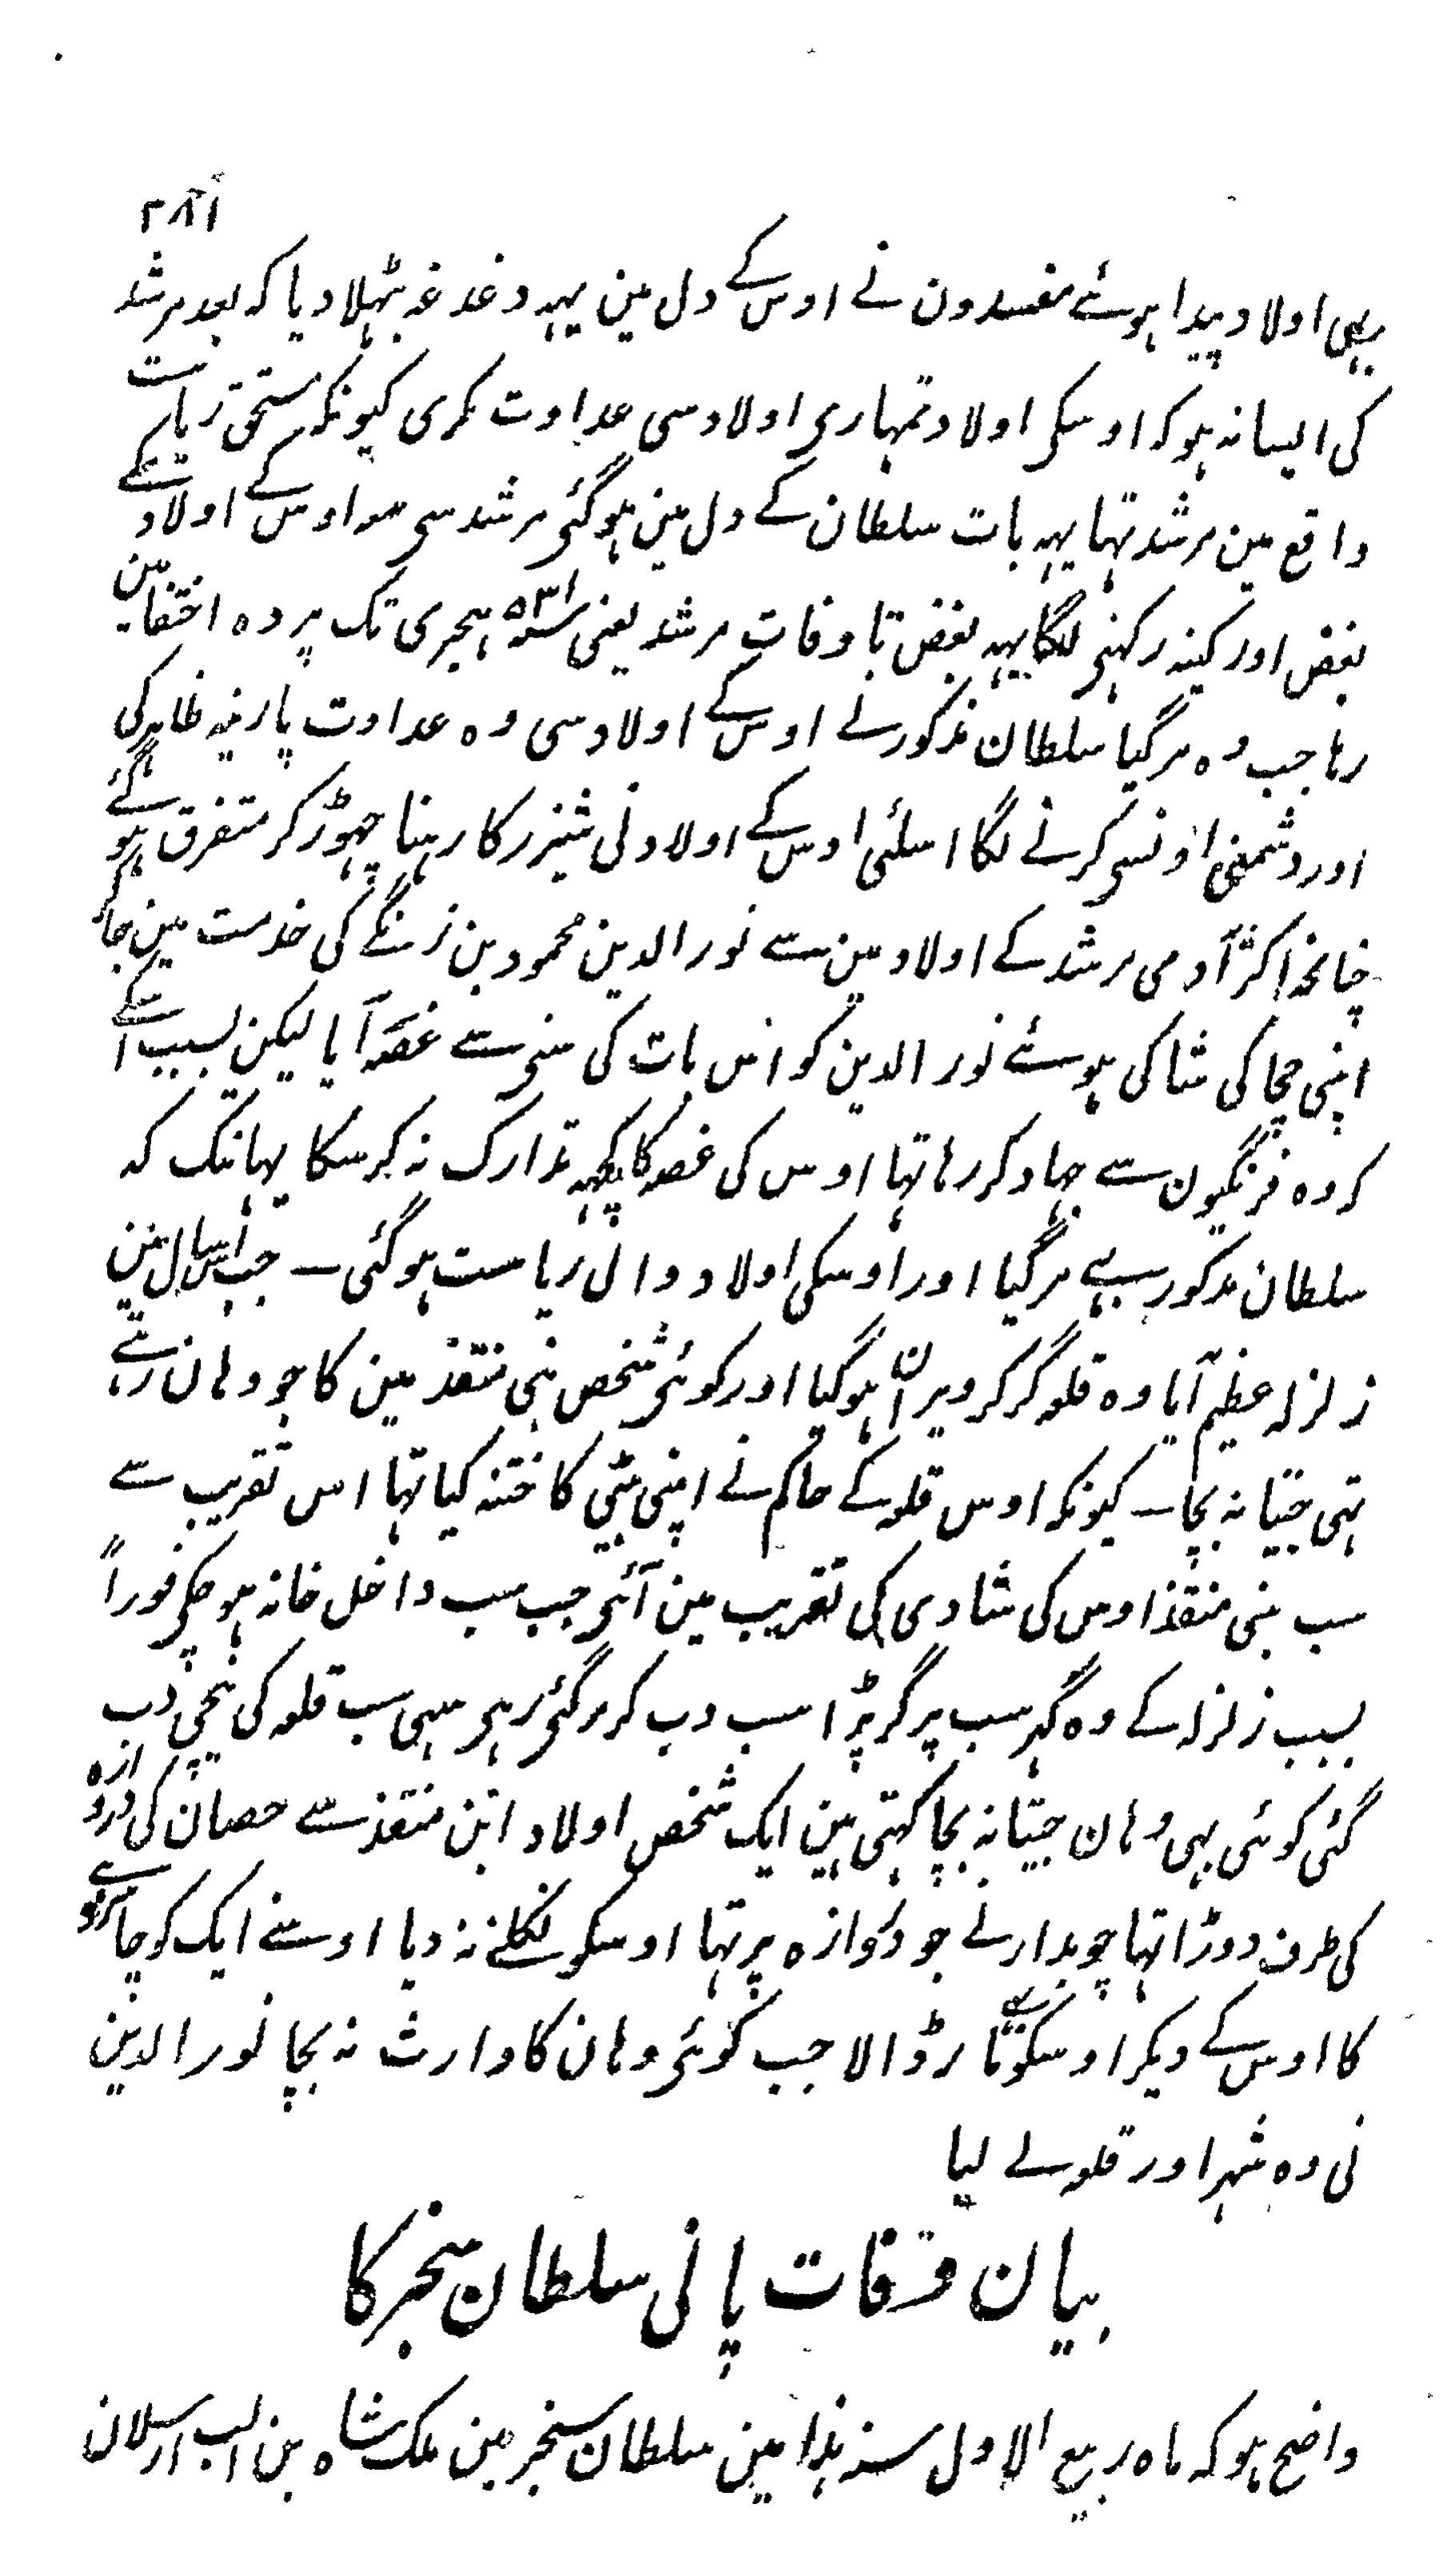 ۲۸۱
بہی اولاد پیدا ہوئے مفسدون نے اوس کے دل مین یہہ دغدغہ بٹہلا دیا کہ بعد مرشد
کی ایسا نہ ہو کہ اوسکی اولاد تمہاری اولاد سی عداوت نکری کیونکہ مستحق ریاست
واقع مین مرشد تہا یہہ بات سلطان کے دل مین ہو گئی مرشد سی معہ اوس کے اولاد کے
بغض اور کینہ رکہنی لگا یہہ بغض تا وفات مرشد یعنی سنہ ۵۳۱ ہجری تک پردہ اختفا مین
رہا جب وہ مر گیا سلطان مذکور نے اوس کے اولاد سی وہ عداوت پارینہ ظاہر کی
اور دشمنی اونسی کرنے لگا اسلئی اوس کے اولاد نی شیزر کا رہنا چہوڑ کر متفرق ہو گئے
چنانچہ اکثر آدمی مرشد کے اولاد مین سے نور الدین محمود بن زنگے کی خدمت مین جا کر
اپنی چچا کی شاکی ہوئے نور الدین کو اس بات کی سنی سے غصہ آیا لیکن بسبب اسکے
کہ وہ فرنگیون سے جہاد کر رہا تہا اوس کی غصہ کا کچہہ تدارک نہ کر سکا یہانتک کہ
سلطان مذکور بہی مر گیا اور اوسکی اولاد والی ریاست ہو گئی ۔ جب اس سال مین
زلزلہ عظیم آیا وہ قلعہ گر کر ویران ہو گیا اور کوئی شخص بنی منقذ مین کا جو وہان رہتے
تہی جیتا نہ بچا ۔ کیونکہ اوس قلعہ کے حاکم نے اپنی بیٹی کا ختنہ کیا تہا اس تقریب سے
سب بنی منقذ اوس کی شادی کی تقریب مین آئی جب سب داخل خانہ ہو چکی فوراً
بسبب زلزلہ کے وہ گہر سب پر گر پڑا سب دب کر مر گئی رہی سہی سب قلعہ کی نیچی دب
گئی کوئی بہی وہان جیتا نہ بچا کہتی ہین ایک شخص اولاد ابن منقذ سے حصان کی دروازہ
کی طرف دوڑا تہا چوبدار نے جو دروازہ پر تہا اوسکو نکلنے نہ دیا اوسنے ایک کوچا
کا اوس کے دیکر اوسکو مار ڈالا جب کوئی وہان کا وارث نہ بچا نور الدین
نی وہ شہر اور قلعہ لے لیا
بیان وفات پانی سلطان سنجر کا
واضح ہو کہ ماہ ربیع الاول سنہ ہذا مین سلطان سنجر بن ملک شاہ بن الب ارسلان